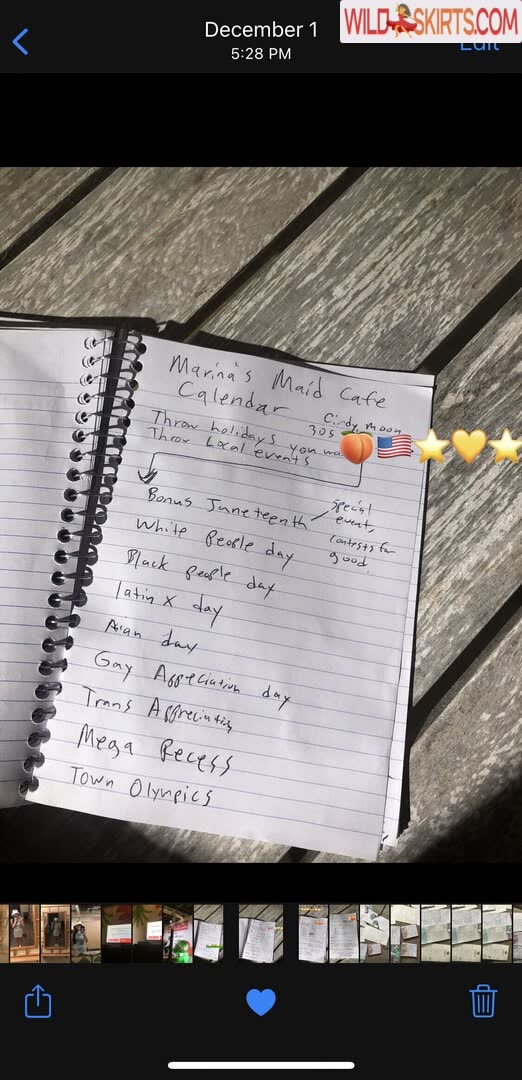 December 1
5:28 PM
WILDSKIRTS.COM
Edit
Marina's Maid Cafe
Calendar
Cindy moon
305
Throw holidays you wa
Throw Local events
Bonus Juneteenth
special
event,
contests for
good.
White People day
Black people day
latin x day
Asian day
Gay Appeciation day
Trans Appreciation
Mega Recess
Town Olympics